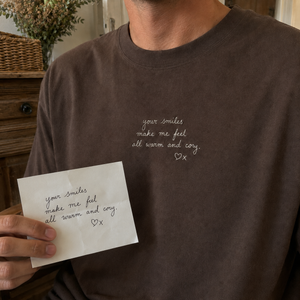 your smiles
make me feel
all warm and cozy.
♡x
your smiles
make me feel
all warm and cozy
♡x